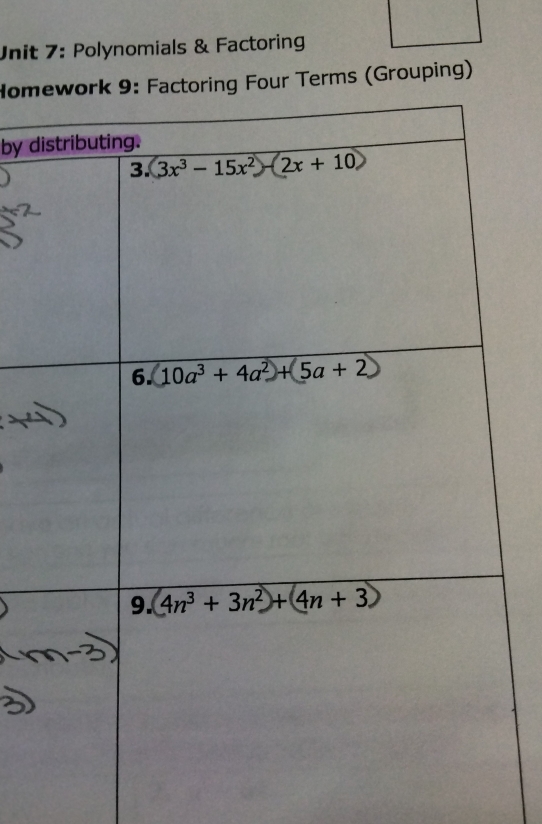 Unit 7: Polynomials & Factoring
Homework 9: Factoring Four Terms (Grouping)
by distributing.
3. (3x³ – 15x²)-(2x + 10)
6. (10a³ + 4a²)+(5a + 2)
9. (4n³ + 3n²)+(4n + 3)
(m-3)
3)